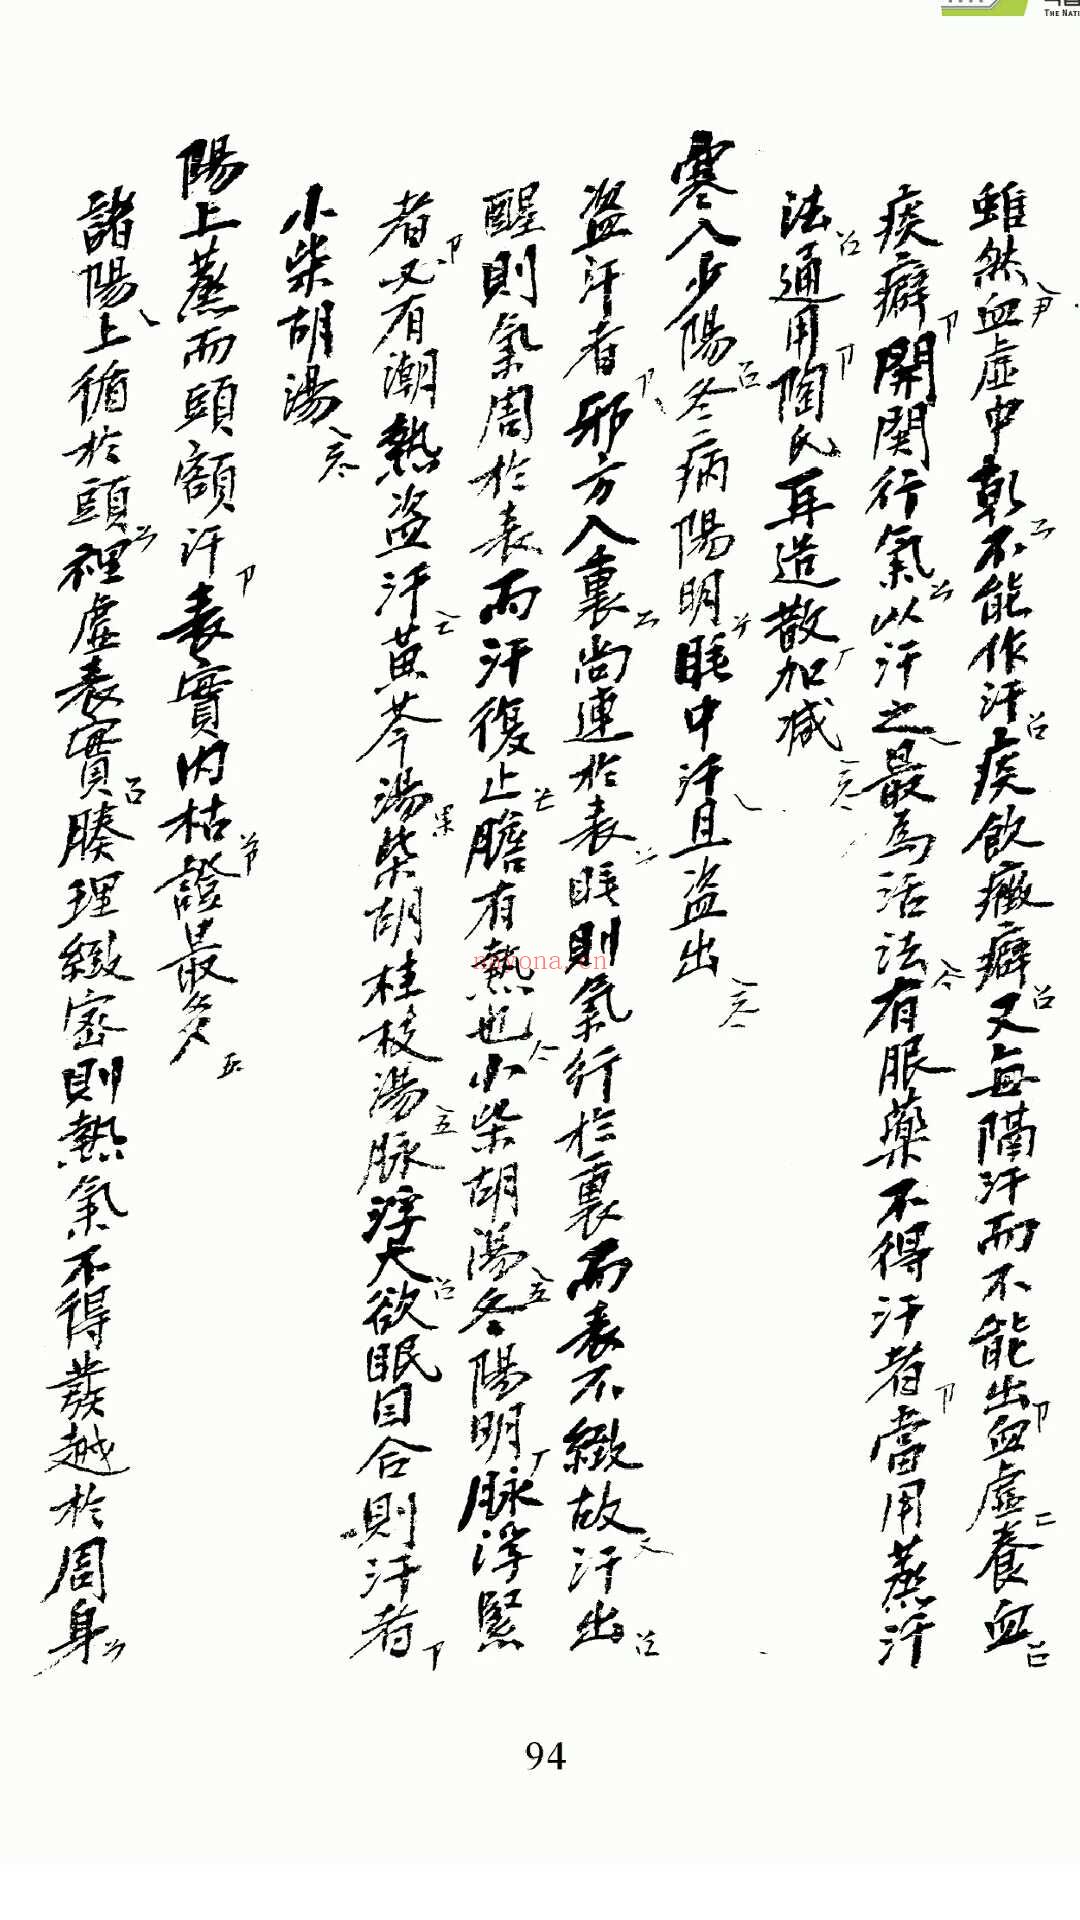 雖然血虛中氣不能作汗痰飲癥癖又每隔汗而不能出血虛養血
痰癖開關行氣以汗之最為活法有服藥不得汗者當用蒸汗
法通用陶氏再造散加减
寒入少陽冬病陽明睡中汗且盜出
盜汗者邪方入裏尚連於表睡則氣行於裏而表不緻故汗出
醒則氣周於表而汗復止膽有熱也小柴胡湯冬陽明脉浮緊
者又有潮熱盜汗黃芩湯柴胡桂枝湯脉浮大欲眠目合則汗者
小柴胡湯
陽上蒸而頭額汗表實內枯證最多
諸陽上循於頭裡虛表實腠理緻密則熱氣不得發越於周身
nayona.cn
THE NATI
94